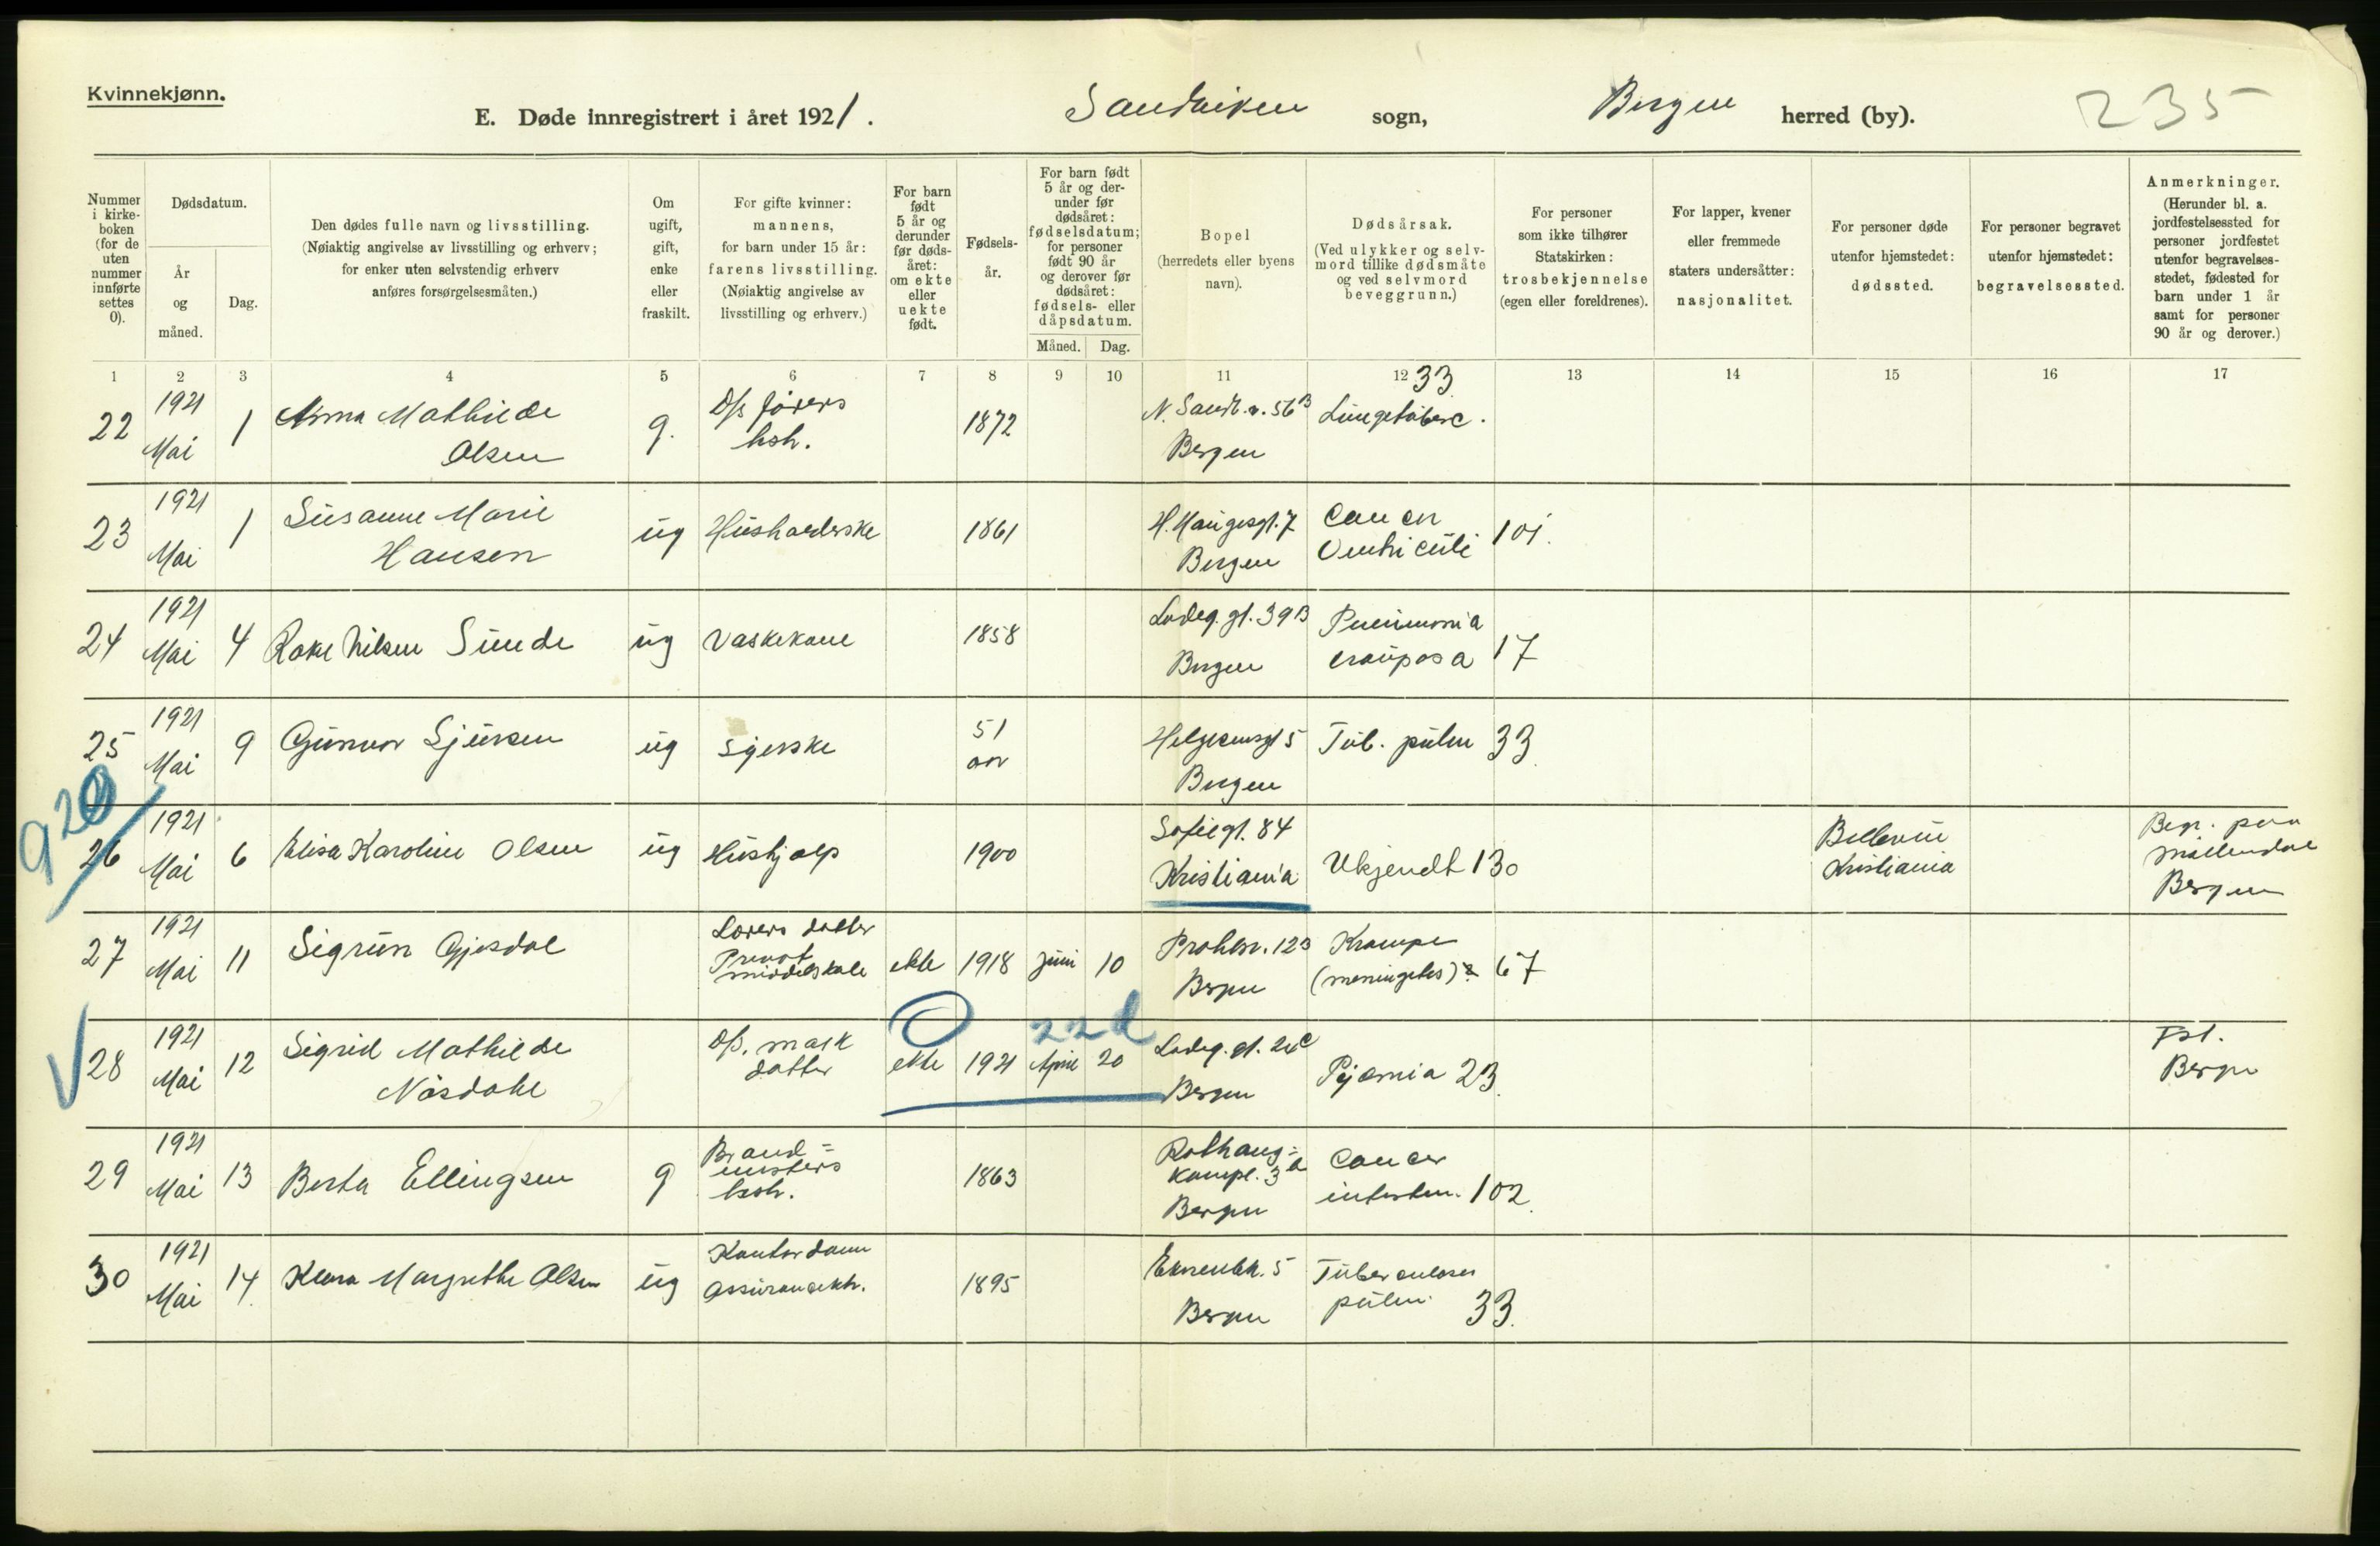 Kvinnekjønn.
E. Døde innregistrert i året 1921. Sandviken sogn, Bergen herred (by). 235
Nummer i kirke-boken (for de uten nummer innførte settes 0).
Dødsdatum.
År og måned.
Dag.
Den dødes fulle navn og livsstilling.
(Nøiaktig angivelse av livsstilling og erhverv;
for enker uten selvstendig erhverv
anføres forsørgelsesmåten.)
Om ugift, gift, enke eller fraskilt.
For gifte kvinner:
mannens,
for barn under 15 år:
farens livsstilling.
(Nøiaktig angivelse av
livsstilling og erhverv.)
For barn født 5 år og derunder før døds-året: om ekte eller uekte født.
Fødsels-år.
For barn født
5 år og der-
under før
dødsåret:
fødselsdatum;
for personer
født 90 år
og derover før
dødsåret:
fødsels- eller
dåpsdatum.
Måned. Dag.
Bopel
(herredets eller byens
navn).
Dødsårsak.
(Ved ulykker og selv-
mord tillike dødsmåte
og ved selvmord
beveggrunn.)
For personer
som ikke tilhører
Statskirken:
trosbekjennelse
(egen eller foreldrenes).
For lapper, kvener
eller fremmede
staters undersåtter:
nasjonalitet.
For personer døde
utenfor hjemstedet:
dødssted.
For personer begravet
utenfor hjemstedet:
begravelsessted.
Anmerkninger.
(Herunder bl. a.
jordfestelsessted for
personer jordfestet
utenfor begravelses-
stedet, fødested for
barn under 1 år
samt for personer
90 år og derover.)
1 2 3 4 5 6 7 8 9 10 11 12 13 14 15 16 17
22 1921 Mai 1 Anna Mathilde Olsen g. hsh. 1872 N. Sandv. v. 56B Bergen Lungetuberc. 33
23 1921 Mai 1 Susanne Marie Hansen ug Husholderske 1861 H. Haugesgt. 7 Bergen Cancer Ventriculi 101.
24 1921 Mai 4 Nilsen Sunde ug Vaskekone 1858 Ladeg. gt. 39B Bergen Pneumonia crouposa 17
25 1921 Mai 9 Gunvor Sjursen ug syerske 51 år Helgesensgt 5 Bergen Tub. pulm 33
920
26 1921 Mai 6 Elisa Karoline Olsen ug Hushjælp 1900 Sofiegt. 84 Kristiania Ukjendt 130 Bellevue Kristiania Begr. paa Møllendal Bergen
27 1921 Mai 11 Sigrun Gjesdal Lærers datter Privat middelskole ekte 1918 juni 10 Bergen Krampe (meningitis)? 67
28 1921 Mai 12 Sigrid Mathilde mask datter ekte 1921 April 20 22d Ladeg. gt. Bergen Pyæmia 23 Fst. Bergen
29 1921 Mai 13 Berta Ellingsen g Brand= mesters hsh. 1863 Rothaug= Bergen Cancer intestin. 102
30 1921 Mai 14 Klara Margrethe Olsen ug Kontordame 1895 Bergen Tuberculosis pulm. 33.